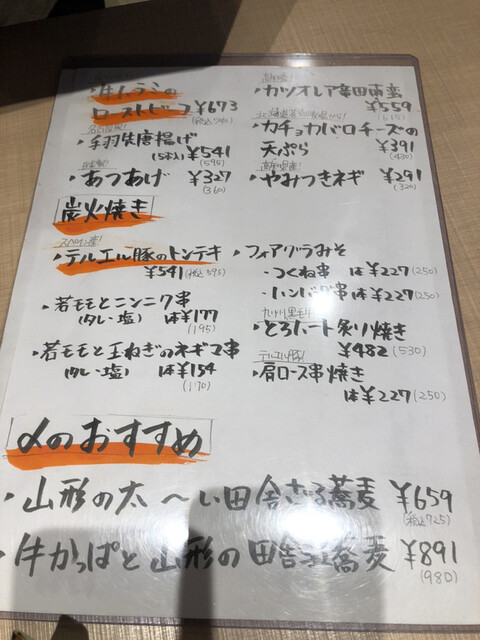 牛ハラミの
ローストビーフ ¥673
名古屋風!
・手羽先唐揚げ
(5本入) ¥541
(595)
・あつあげ ¥327
(360)
・カツオレア竜田南蛮
¥559
(615)
カチョカバロチーズの
天ぷら ¥391
(430)
高知県産!
・やみつきネギ ¥291
(320)
炭火焼き
スペイン産!
・テルエル豚のトンテキ
¥541(税込595)
・若モモとニンニク串
(タレ・塩) は¥177
(195)
・若モモと玉ねぎのネギマ串
(タレ・塩) は¥154
(170)
・フォアグラみそ
・つくね串 は¥227(250)
・ハンバーグ串は¥227(250)
九州黒毛牛
・とろハート炙り焼き
¥482(530)
テルエル豚!
・肩ロース串焼き
は¥227(250)
〆のおすすめ
・山形の太〜い田舎ざる蕎麦 ¥659
(税込725)
・牛かっぱと山形の田舎 蕎麦 ¥891
(980)